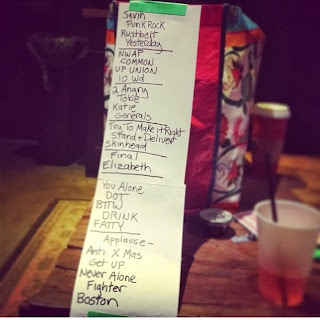 Savin
Punk Rock
Rustbelt
Yesterday
NWAP
COMMON
UP UNION
10 Wd
2 Angry
Tobie
Katie
Generals
Try To Make it Right
Stand + Deliver
Skinhead
Final
Elizabeth
You Alone
DOT
BTTW
DRINK
FATTY
Applause -
Anti X Mas
Get UP
Never Alone
Fighter
Boston